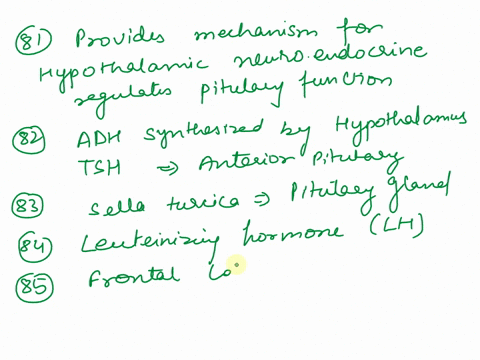 (81) Provides mechanism for
Hypothalamic neuro.endocrine
regulates pitutary function
(82) ADH synthesized by Hypothalamus
TSH ⇒ Anterior Pitutary
(83) Sella turcica ⇒ Pitutary gland
(84) Leuteinizing hormone (LH)
(85) Frontal Lo